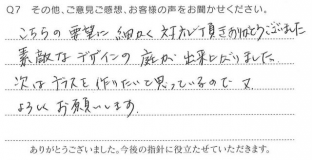 Q7 その他、ご意見ご感想、お客様の声をお聞かせください。
こちらの要望に細かく対応頂きありがとうございました
素敵なデザインの庭が出来上がりました。
次はテラスを作りたいと思っているので又
よろしくお願いします。
ありがとうございました。今後の指針に役立たせていただきます。